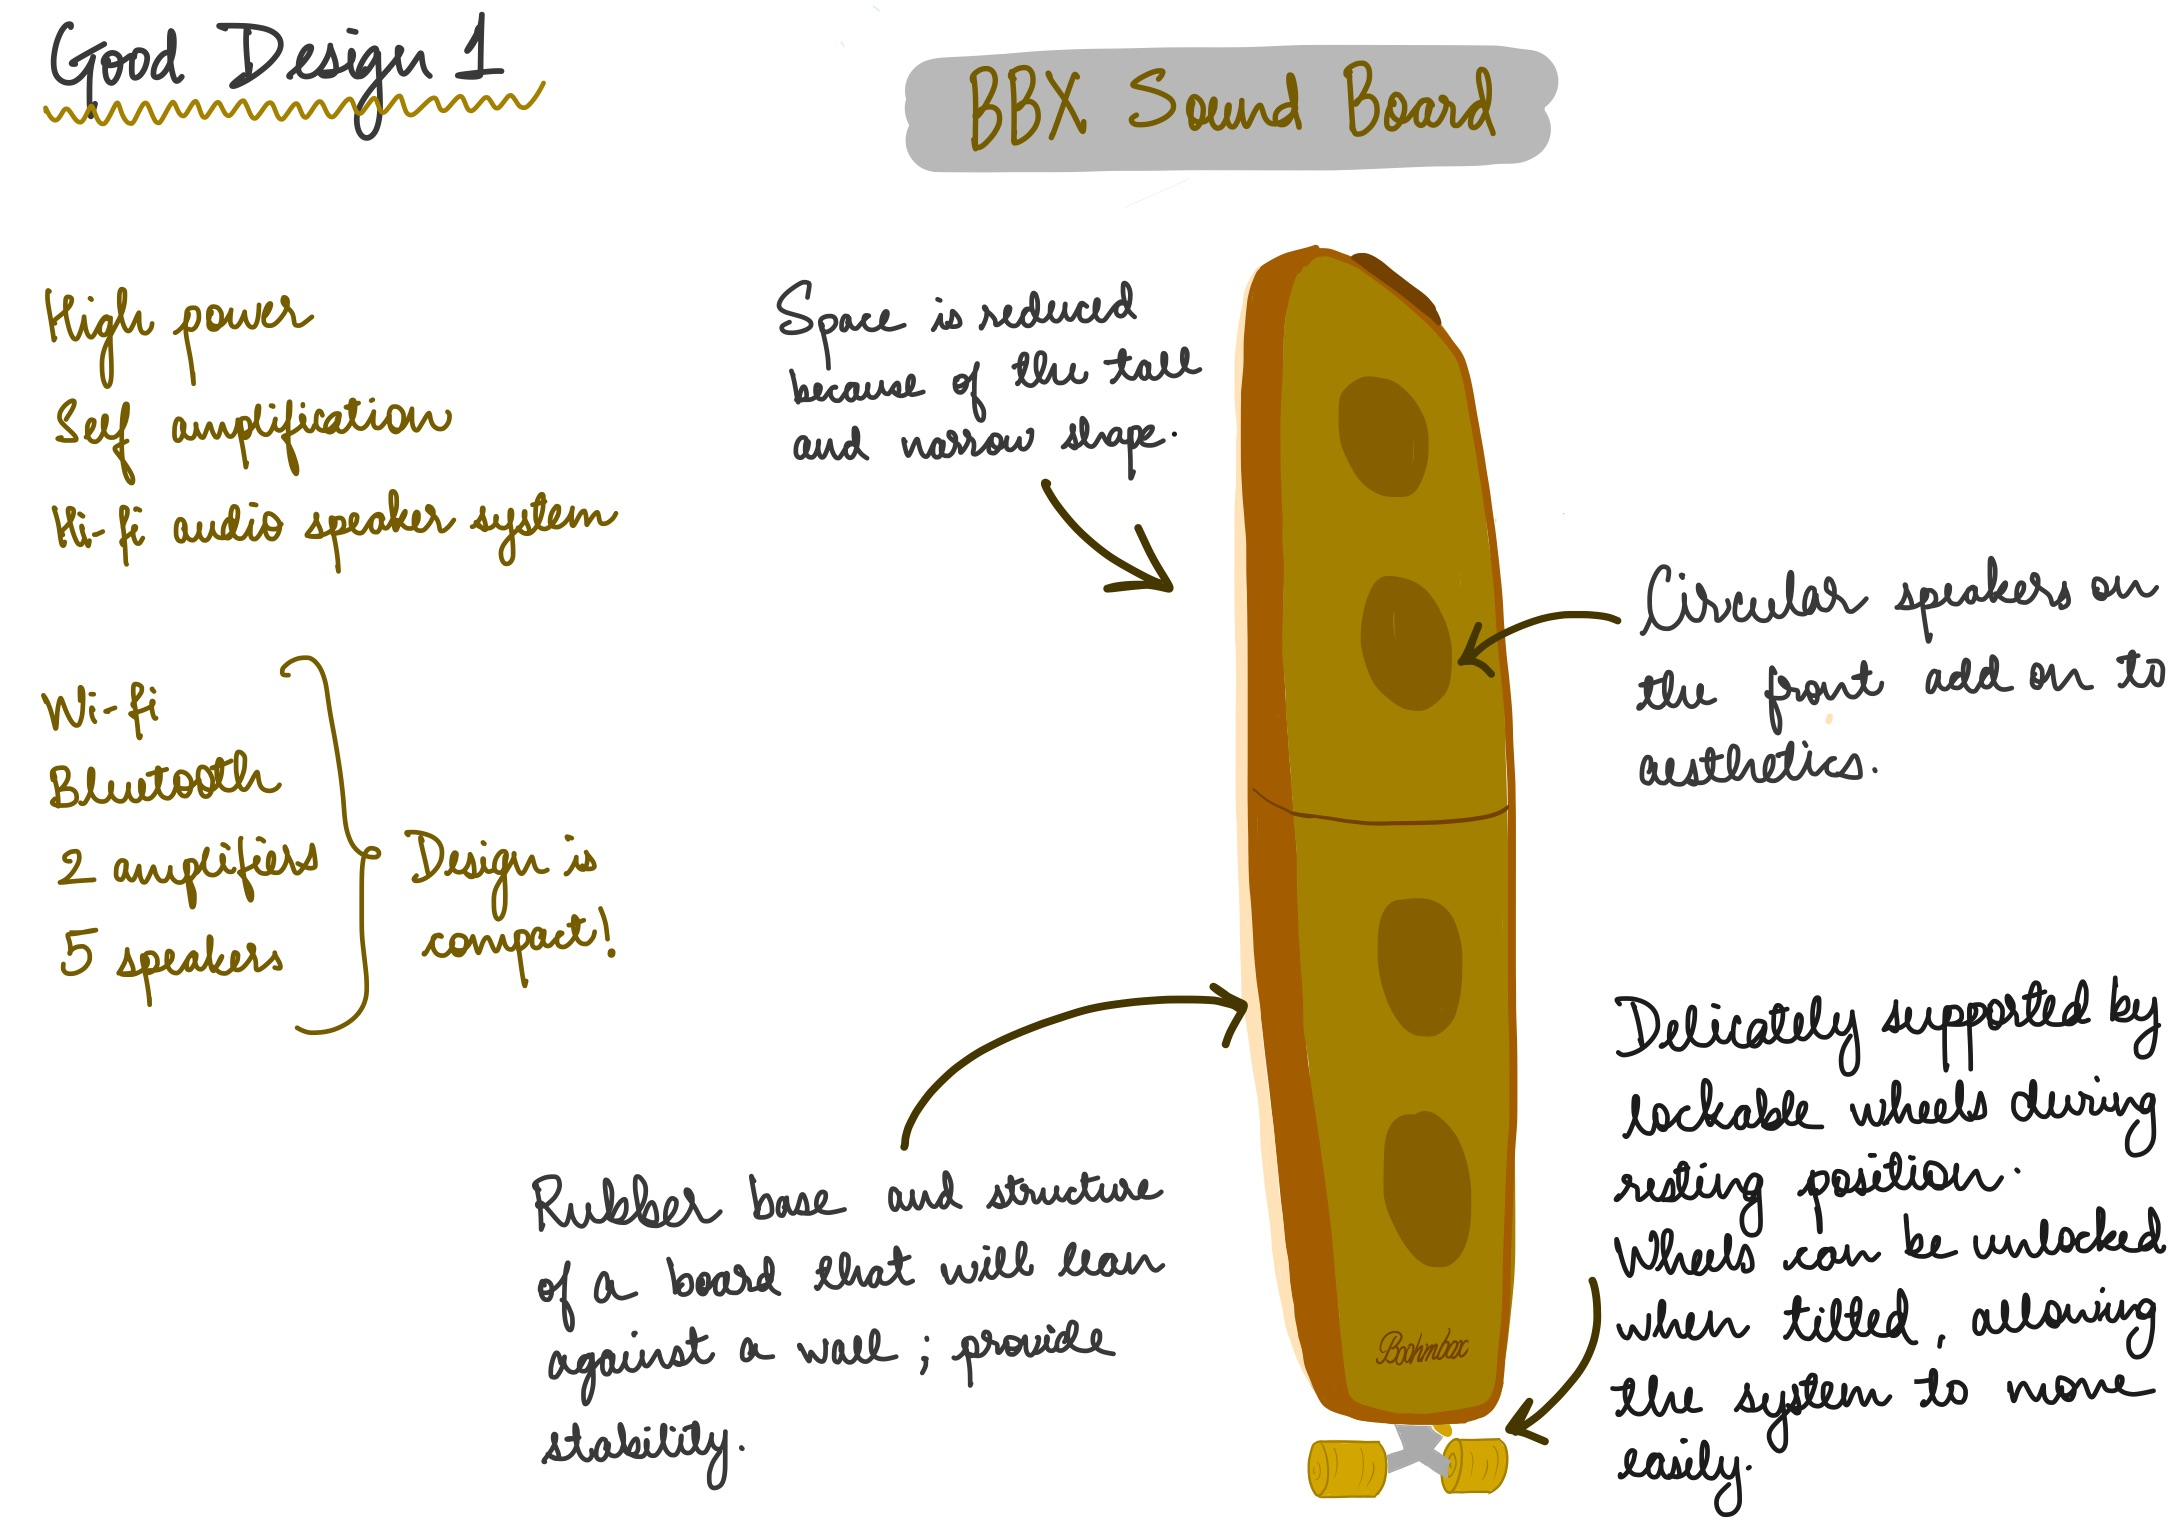 Good Design 1
BBX Sound Board
High power
Self amplification
Hi-fi audio speaker system
Wi-fi
Bluetooth
2 amplifiers
5 speakers
Design is
compact!
Space is reduced
because of the tall
and narrow shape.
Circular speakers on
the front add on to
aesthetics.
Rubber base and structure
of a board that will lean
against a wall ; provide
stability.
Delicately supported by
lockable wheels during
resting position.
Wheels can be unlocked
when tilted, allowing
the system to move
easily.
Boahmbox